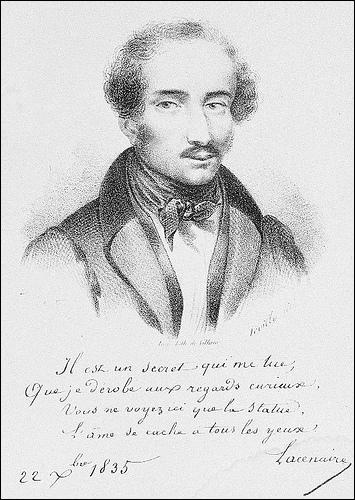 Lith. de
Il est un secret qui me tue,
Que je derobe aux regards curieux,
Vous ne voyez ici que la statue,
L'âme se cache a tous les yeux,
Lacenaire
22 Xbre 1835